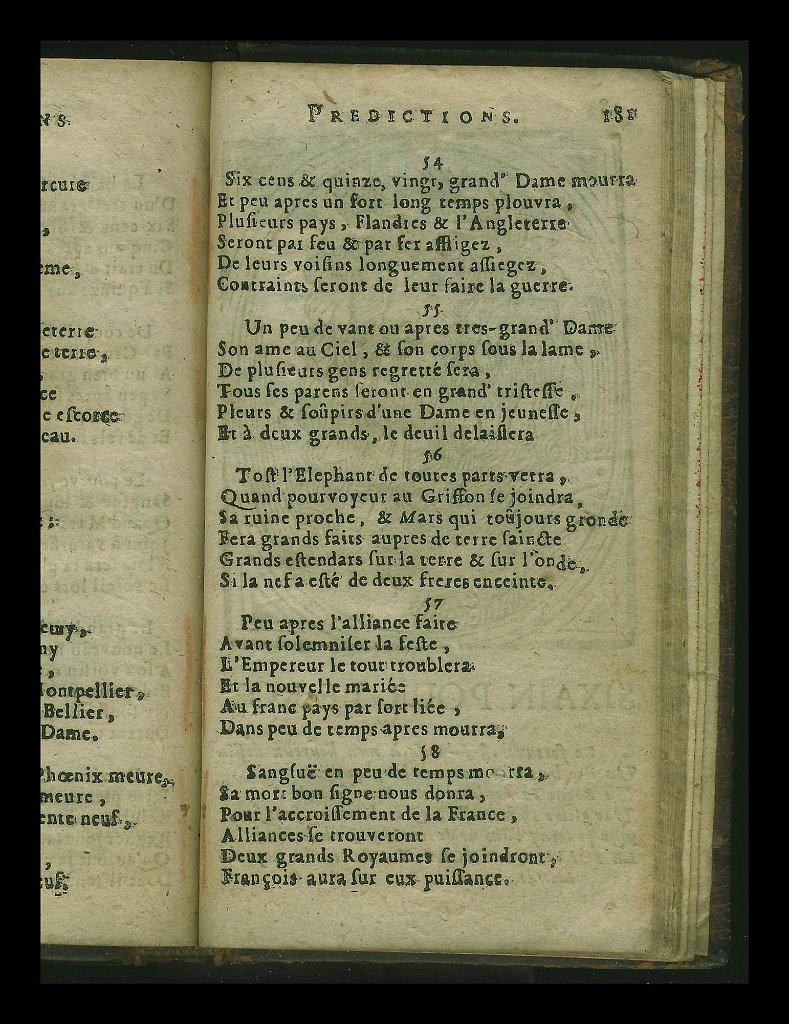 NS.
rcure
,
eme,
leterre
e terre,
,
ce
e escorce
eau.
;
my
,
Montpellier,
Bellier,
Dame.
Phœnix meure,
meure,
ente neuf,
,
PREDICTIONS. 181
54
Six cens & quinze, vingt, grand' Dame mourra
Et peu apres un fort long temps plouvra,
Pluſieurs pays, Flandres & l'Angleterre
Seront par feu & par fer affligez,
De leurs voiſins longuement aſſiegez,
Contraints ſeront de leur faire la guerre.
55
Un peu de vant ou apres tres-grand' Dame
Son ame au Ciel, & ſon corps ſous la lame,
De pluſieurs gens regretté ſera,
Tous ſes parens ſeront en grand' triſteſſe,
Pleurs & ſoûpirs d'une Dame en jeuneſſe,
Et à deux grands, le deuil delaiſſera
56
Toſt l'Elephant de toutes parts verra,
Quand pourvoyeur au Griffon ſe joindra,
Sa ruine proche, & Mars qui toûjours gronde
Fera grands faits aupres de terre ſaincte
Grands eſtendars ſur la terre & ſur l'onde,
Si la nef a eſté de deux freres enceinte.
57
Peu apres l'alliance faite
Avant ſolemniſer la feſte,
L'Empereur le tout troublera
Et la nouvelle mariée
Au franc pays par ſort liée,
Dans peu de temps apres mourra,
58
Sangſuë en peu de temps mourra,
Sa mort bon ſigne nous donra,
Pour l'accroiſſement de la France,
Alliances ſe trouveront
Deux grands Royaumes ſe joindront,
François aura ſur eux puiſſance.